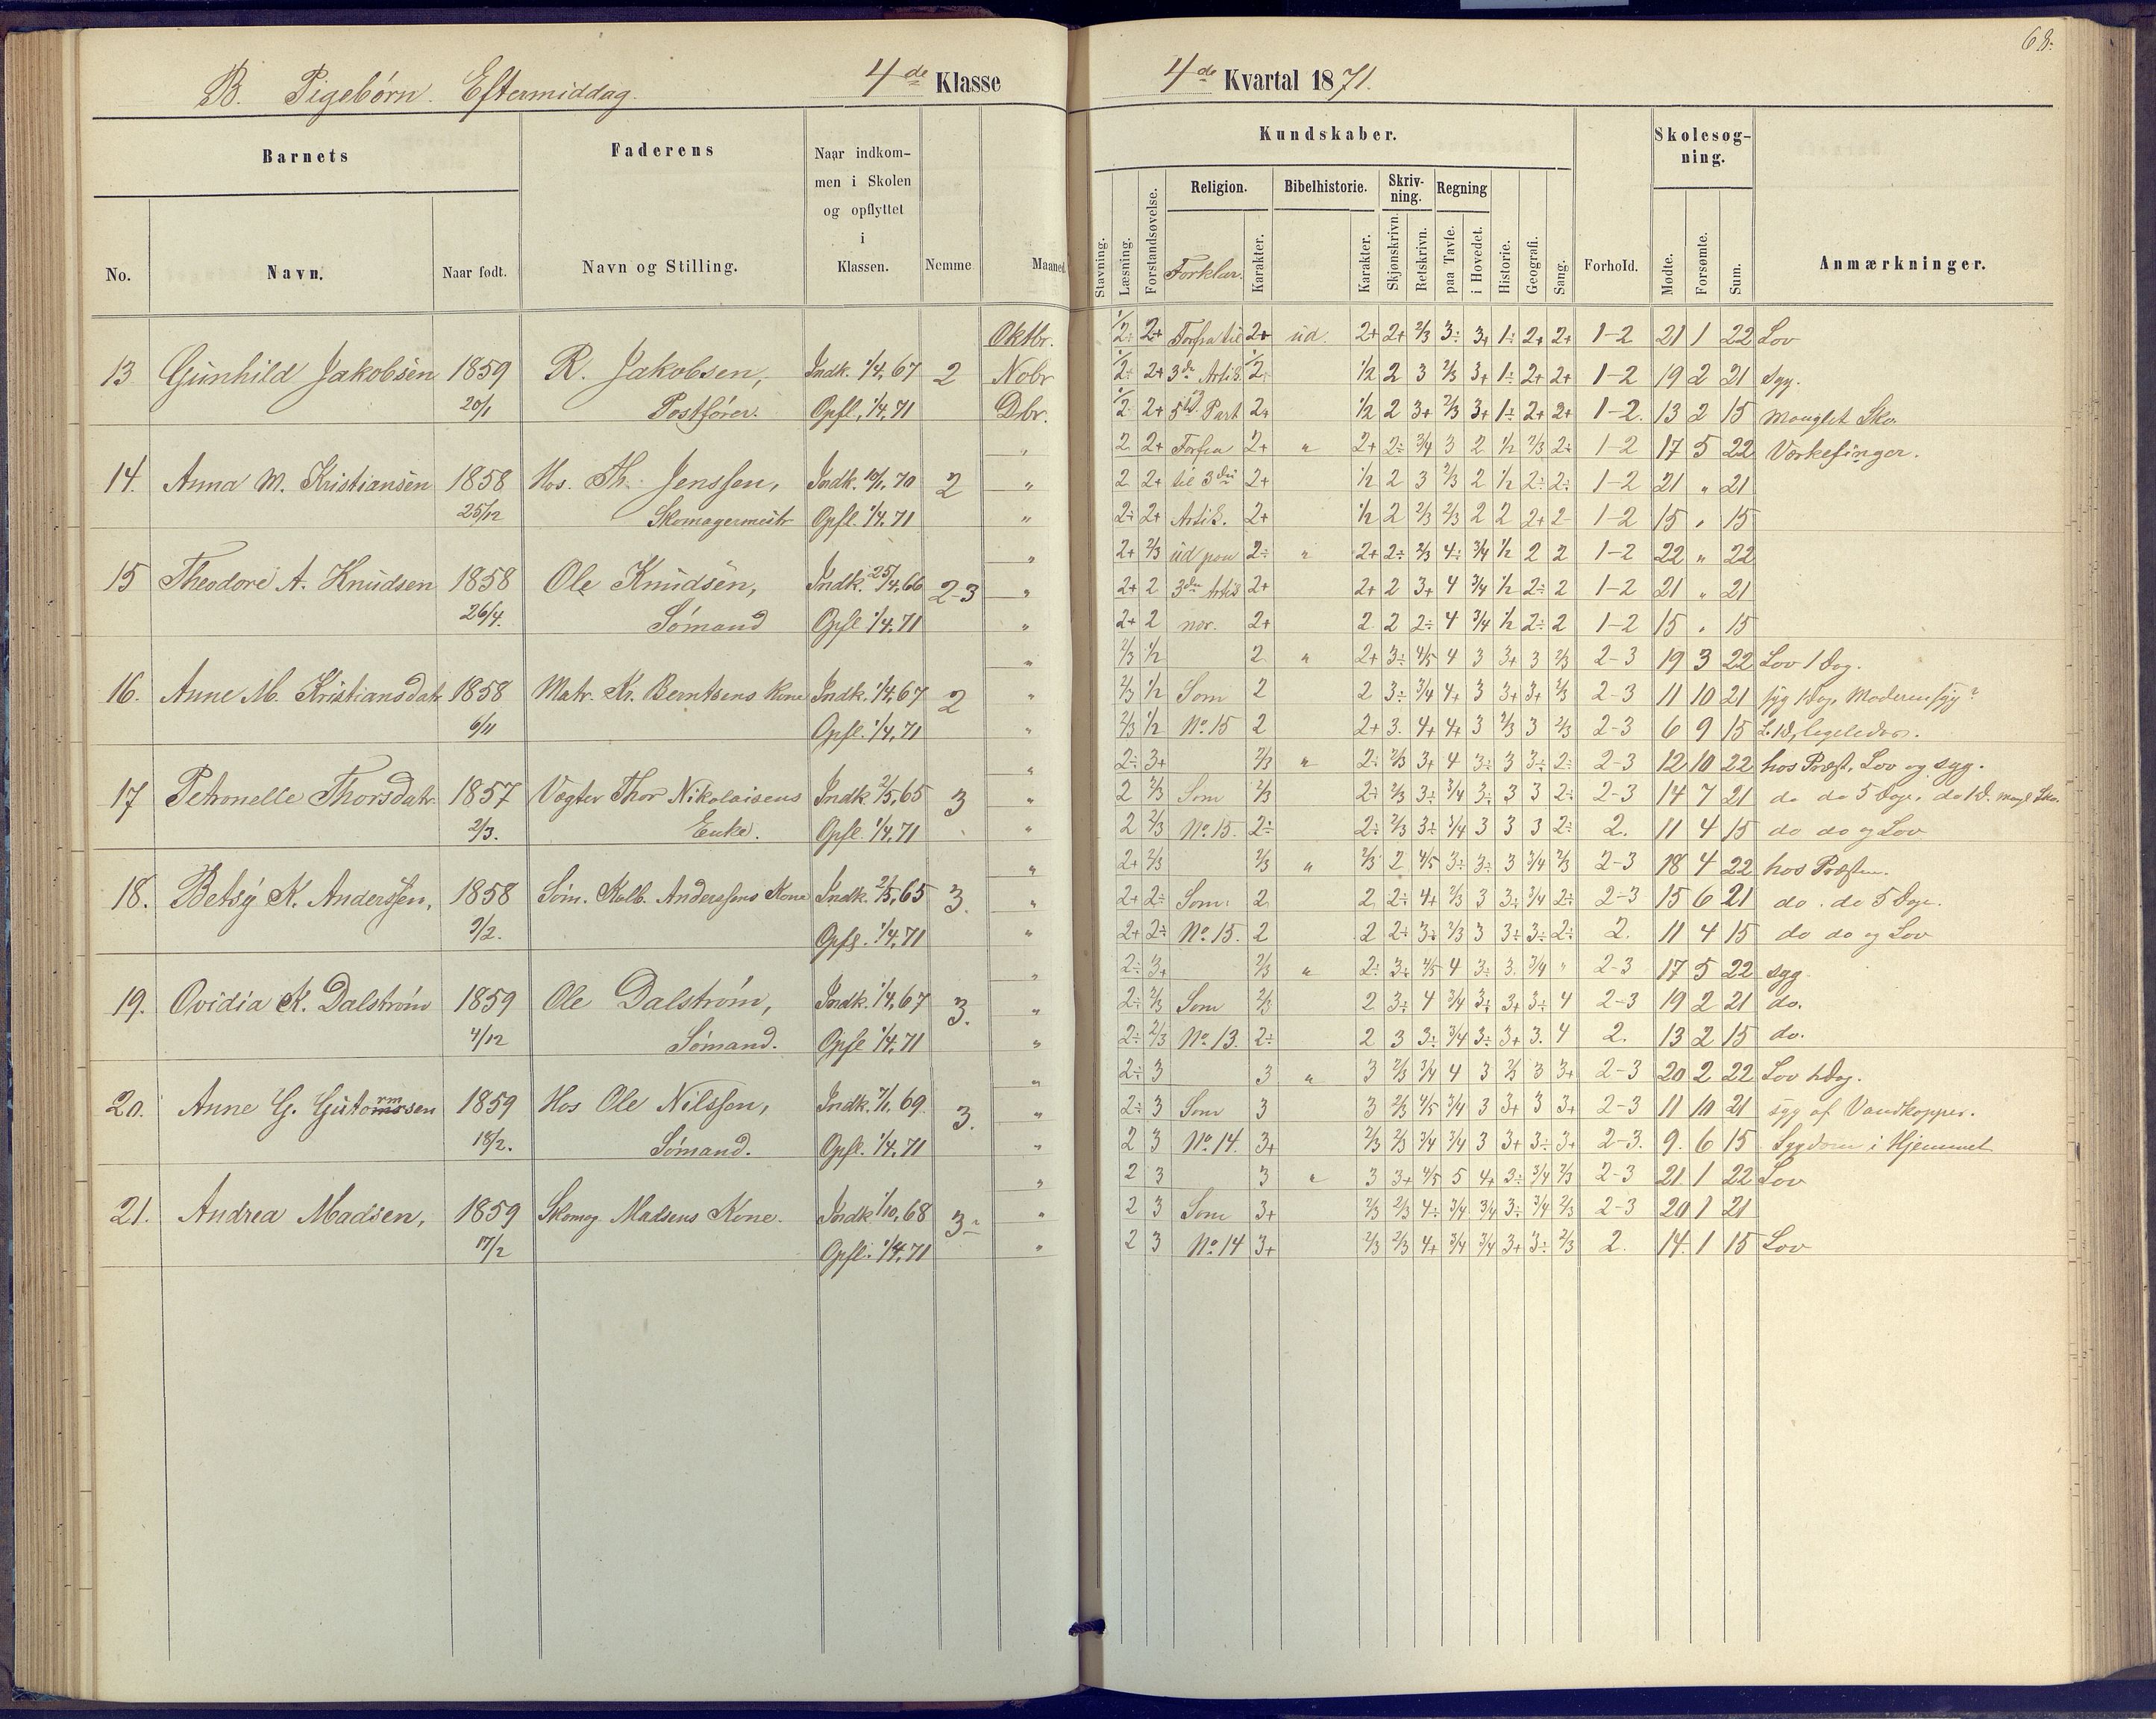 68.
B. Pigebørn. Eftermiddag. 4de Klasse
4de Kvartal 1871.
Barnets
Faderens
Naar indkommen i Skolen og opflyttet i Klassen.
Nemme
Maaned
Kundskaber.
Skolesøgning.
No. Navn. Naar født. Navn og Stilling.
Stavning. Læsning. Forstandsøvelse. Religion. Forklar. Karakter. Bibelhistorie. Karakter. Skrivning. Skjønskrivn. Retskrivn. Regning paa Tavle. i Hovedet. Historie. Geografi. Sang. Forhold. Mødte. Forsømte. Sum. Anmærkninger.
Oktbr. 1/2÷ 2+ Forfra til 2+ ud. 2+ 2+ 2/3 3÷ 3+ 1÷ 2+ 2+ 1-2 21 1 22 Lov
13 Gunhild Jakobsen 1859 R. Jakobsen, Indk. 1/4,67 2 Nobr 1/2÷ 2+ 3die Artik. 1/2÷ 1/2 2 3 2/3 3+ 1÷ 2+ 2+ 1-2 19 2 21 syg.
20/1 Postfører. Opfl. 1/4,71 Dbr. 1/2 2+ 5te Part 2+ 1/2 2 3+ 2/3 3+ 1÷ 2+ 2+ 1-2. 13 2 15 Manglet Sko
" 2 2+ Forfra 2+ " 2+ 2÷ 3/4 3 2 1/2 2/3 2÷ 1-2 17 5 22 Verkefinger.
14. Anna M. Kristiansen 1858 Hos. Th. Jenssen, Indk. 10/1,70 2 " 2 2+ til 3die 2+ 1/2 2 3 2/3 2 1/2 2÷ 2÷ 1-2 21 " 21
25/12 Skomagermestr Opfl. 1/4,71 " 2÷ 2+ Artik. 2+ 1/2 2 2/3 2/3 2 2 2+ 2- 1-2 15 " 15
" 2+ 2/3 ud paa 2÷ " 2+ 2÷ 2/3 4÷ 3/4 1/2 2 2 1-2 22 " 22
15 Theodore A. Knudsen 1858 Ole Knudsen, Indk. 25/4,66 2-3 " 2+ 2 3die Artik 2+ 2+ 2 3+ 4 3/4 1/2 2÷ 2 1-2 21 " 21
26/4. Sømand Opfl 1/4,71 " 2+ 2 nor. 2+ 2 2 2÷ 4 3/4 1/2 2÷ 2 1-2 15 " 15
" 2/3 1/2 2 " 2+ 3÷ 4/5 4 3 3+ 3 2/3 2-3 19 3 22 Lov 1 Dag.
16. Anne M. Kristiansdatr 1858 Matr. Kr. Berntsens Kone Indk. 1/4,67 2 " 2/3 1/2 Som 2 2 3÷ 3/4 4+ 3 3+ 3+ 2/3 2-3 11 10 21 syg 1 Dag Moderen syg?
6/11 Opfl. 1/4,71 " 2/3 1/2 No. 15 2 2+ 3. 4+ 4+ 3 2/3 3 2/3 2-3 6 9 15 L. 1 D, ligeledes.
" 2÷ 3+ 2/3 " 2÷ 2/3 3+ 4 3÷ 3 3÷ 2÷ 2-3 12 10 22 hos Præst, Lov og syg.
17 Petronelle Thorsdatr. 1857 Vægter Thor Nikolaisens Indk 2/5,65 3 " 2 2/3 Som 2/3 2÷ 2/3 3÷ 3/4 3÷ 3 3 2÷ 2-3 14 7 21 do do 5 Dage, do 1 D. mangl Sko.
2/3. Enke. Opfl. 1/4,71 " 2 2/3 No. 15. 2÷ 2÷ 2/3 3÷ 3/4 3 3 3 2÷ 2. 11 4 15 do do og Lov
" 2+ 2/3 2/3 " 2/3 2 4/5 3÷ 3÷ 3 3/4 2/3 2-3 18 4 22 hos Præsten.
18. Betsy K. Anderssen, 1858 Søm. Kolb. Anderssens Kone Indk. 2/5,65 3. " 2+ 2÷ Som 2 2 2÷ 4+ 2/3 3 3÷ 3/4 2÷ 2-3 15 6 21 do. do 5 Dage.
2/2. Opfl. 1/4,71 " 2+ 2÷ No. 15. 2 2 2÷ 3÷ 2/3 3 3÷ 3÷ 2÷ 2. 11 4 15 do do og Lov
" 2÷ 3+ 2/3 " 2÷ 3+ 4/5 4 3÷ 3 3/4 " 2-3 17 5 22 syg.
19. Ovidia K. Dalstrøm 1859 Ole Dalstrøm, Indk. 1/4,67 3. " 2÷ 2/3 Som 2/3 2 3÷ 4 3/4 3÷ 3+ 3÷ 4 2-3 19 2 21 do.
4/12 Sømand. Opfl 1/4,71 " 2÷ 2/3 No. 13. 2÷ 2 3 3÷ 3/4 3÷ 3+ 3. 4 2. 13 2 15 do.
" 2÷ 3 3 " 3 2/3 3/4 4 3 2/3 3 3+ 2-3 20 2 22 Lov 1 Dag.
20. Anne G. Gutormsen 1859 Hos Ole Nilssen, Indk. 7/1,69 3. " 2÷ 3 Som 3 3 2/3 4/5 3/4 3 3+ 3 3+ 2-3 11 10 21 syg af Vandkopper.
18/2. Sømand. Opfl. 1/4,71 " 2 3 No. 14. 3+ 2/3 2/3 3/4 3/4 3 3+ 3÷ 3+ 2-3. 9. 6 15 Sygdom i Hjemmet
" 2 3 3 " 3 3+ 4/5 5 4+ 3÷ 3/4 2/3 2-3 21 1 22 Lov
21. Andrea Madsen, 1859 Skomag. Madsens Kone. Indk 1/10,68 3÷ " 2 3 Som 3+ 2/3 2/3 4÷ 3/4 3/4 3÷ 3/4 2/3 2-3 20 1 21
17/2 Opfl. 1/4,71 " 2 3 No. 14 3+ 2/3 2/3 4+ 3/4 3/4 3+ 3÷ 2/3 2. 14. 1 15 Lov